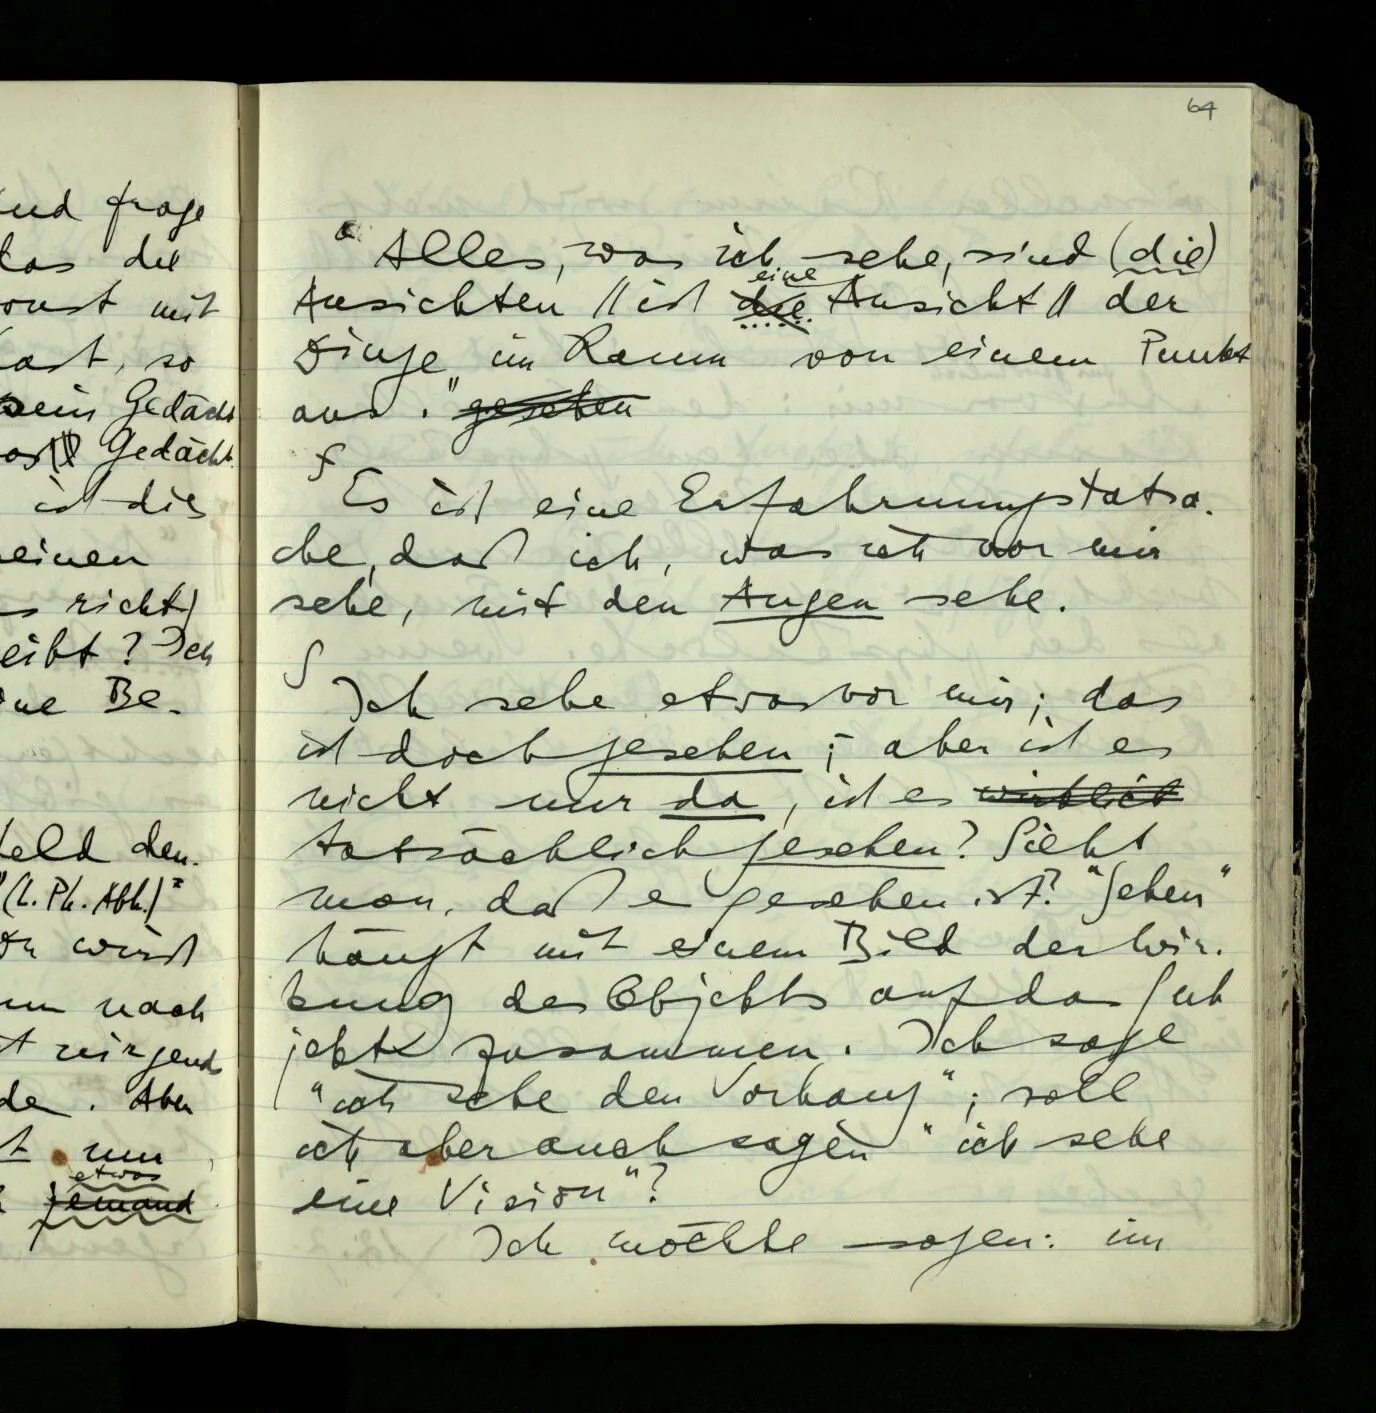 und frage
das die
sonst mit
hast, so
sein Gedächt
Gedächt.
ist dies
meinen
richt
eibt? Ich
ine Be-
feld den-
(L. Ph. Abh.)"
wirst
nun nach
t nirgends
de. Aber
t nun
etwas
jemand
64
" Alles, was ich sehe, sind (die)
eine
Ansichten // ist die Ansicht // der
Dinge im Raum von einem Punkt
aus." gesehen
∫
Es ist eine Erfahrungstatsa-
che, daß ich, was ich vor mir
sehe, mit den Augen sehe.
∫
Ich sehe etwas vor mir; das
ist doch gesehen; aber ist es
nicht nur da, ist es wirklich
tatsächlich gesehen? Sieht
man, daß es gesehen ist? "Sehen"
hängt mit einem Bild der Wir-
kung des Objekts auf das Sub
jekt zusammen. Ich sage
"ich sehe den Vorhang"; soll
ich aber auch sagen "ich sehe
eine Vision"?
Ich möchte sagen: im